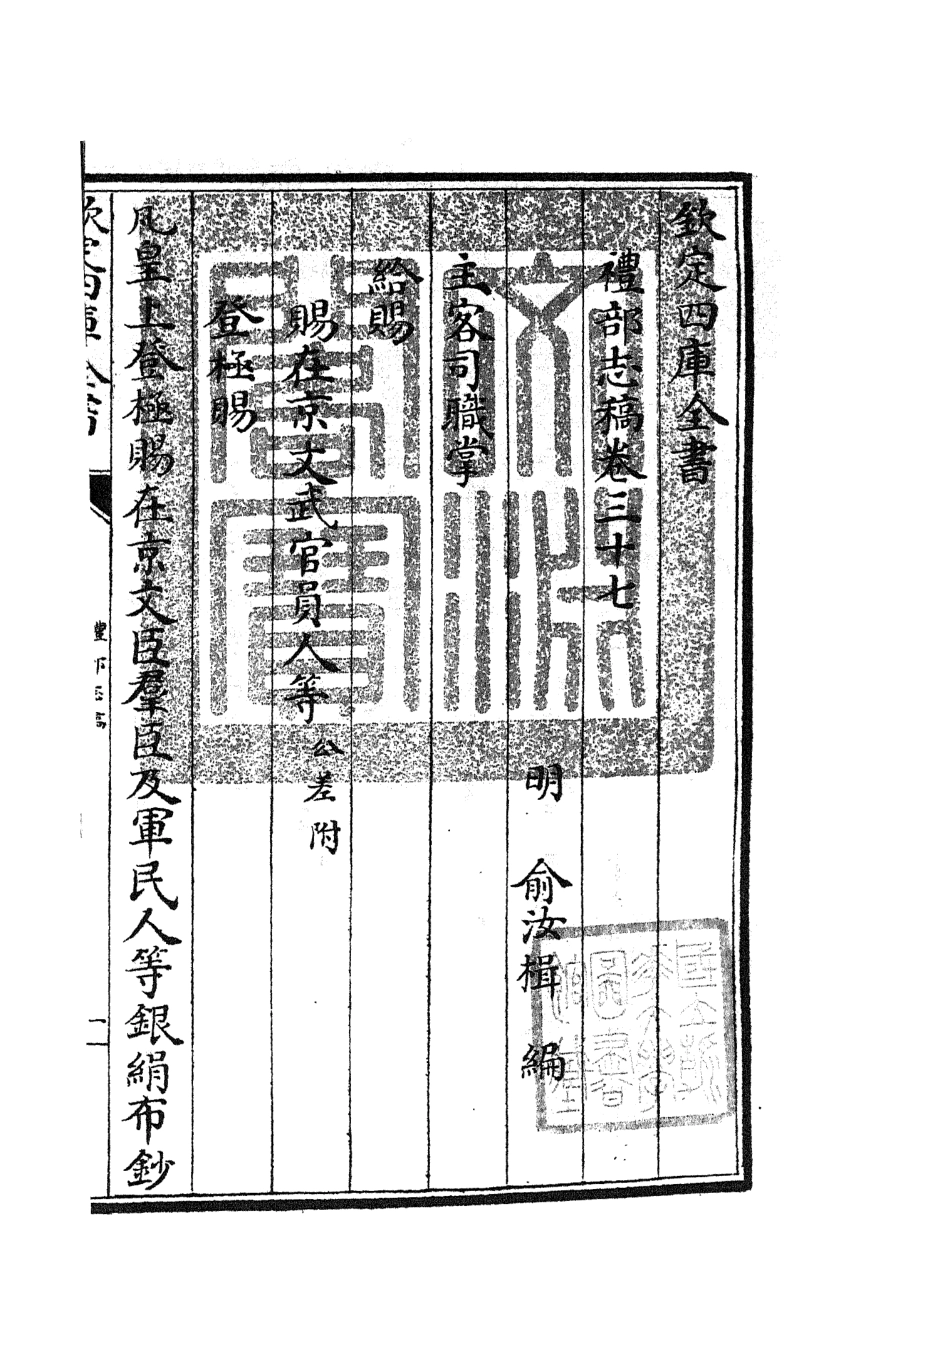 欽定四庫全書
禮部志稿卷三十七
明 俞汝楫 編
主客司職掌
給賜
賜在京文武官員人等公差附
登極賜
凡皇上登極賜在京文臣羣臣及軍民人等銀絹布鈔
欽定四庫全書
禮部志稿
一